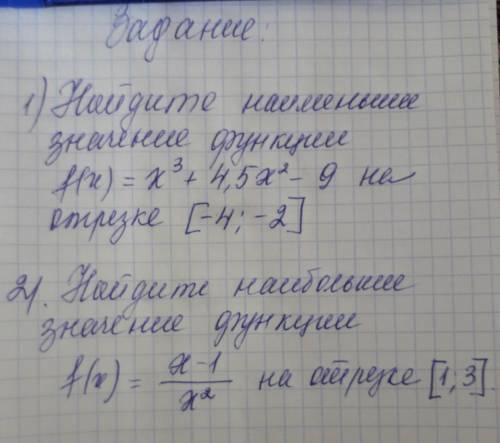 Задание:
1) Найдите наименьшее
значение функции
f(x) = x³ + 4,5x² - 9 на
отрезке [-4; -2]
2). Найдите наибольшее
значение функции
f(x) = \frac{x-1}{x²} на отрезке [1; 3].